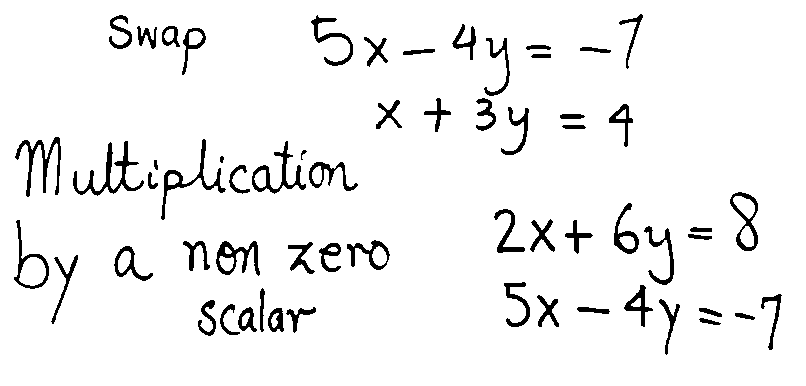 Swap 5x - 4y = -7
x + 3y = 4
Multiplication
by a non zero 2x + 6y = 8
scalar 5x - 4y = -7